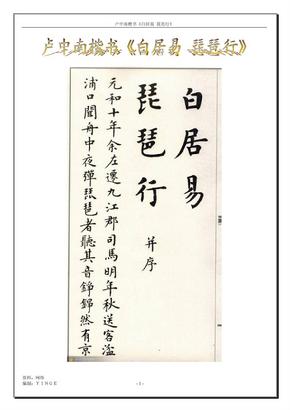 卢中南楷书《白居易 琵琶行》
卢中南楷书《白居易 琵琶行》
白居易
琵琶行 并序
元和十年余左遷九江郡司馬明年秋送客湓
浦口聞舟中夜彈琵琶者聽其音錚錚然有京
资料：网络
编辑：YINGE
- 1 -